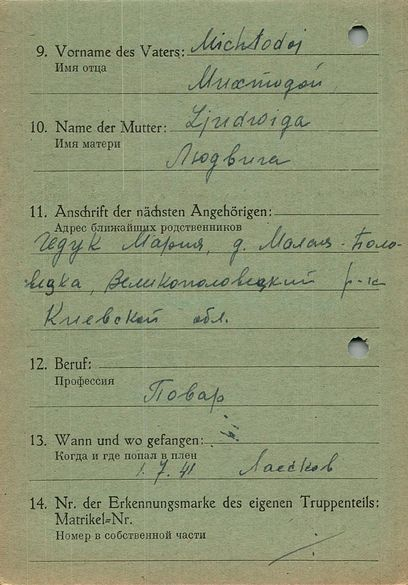 9. Vorname des Vaters: Michtodoj
Имя отца
Михтодой
10. Name der Mutter: Ljudwiga
Имя матери
Людвига
11. Anschrift der nächsten Angehörigen:
Адрес ближайших родственников
Мария, д. Малая-Поло-
вецка, Великополовецкий р-н
Киевской обл.
12. Beruf:
Профессия
Повар
13. Wann und wo gefangen:
Когда и где попал в плен
1.7.41
14. Nr. der Erkennungsmarke des eigenen Truppenteils:
Matrikel=Nr.
Номер в собственной части